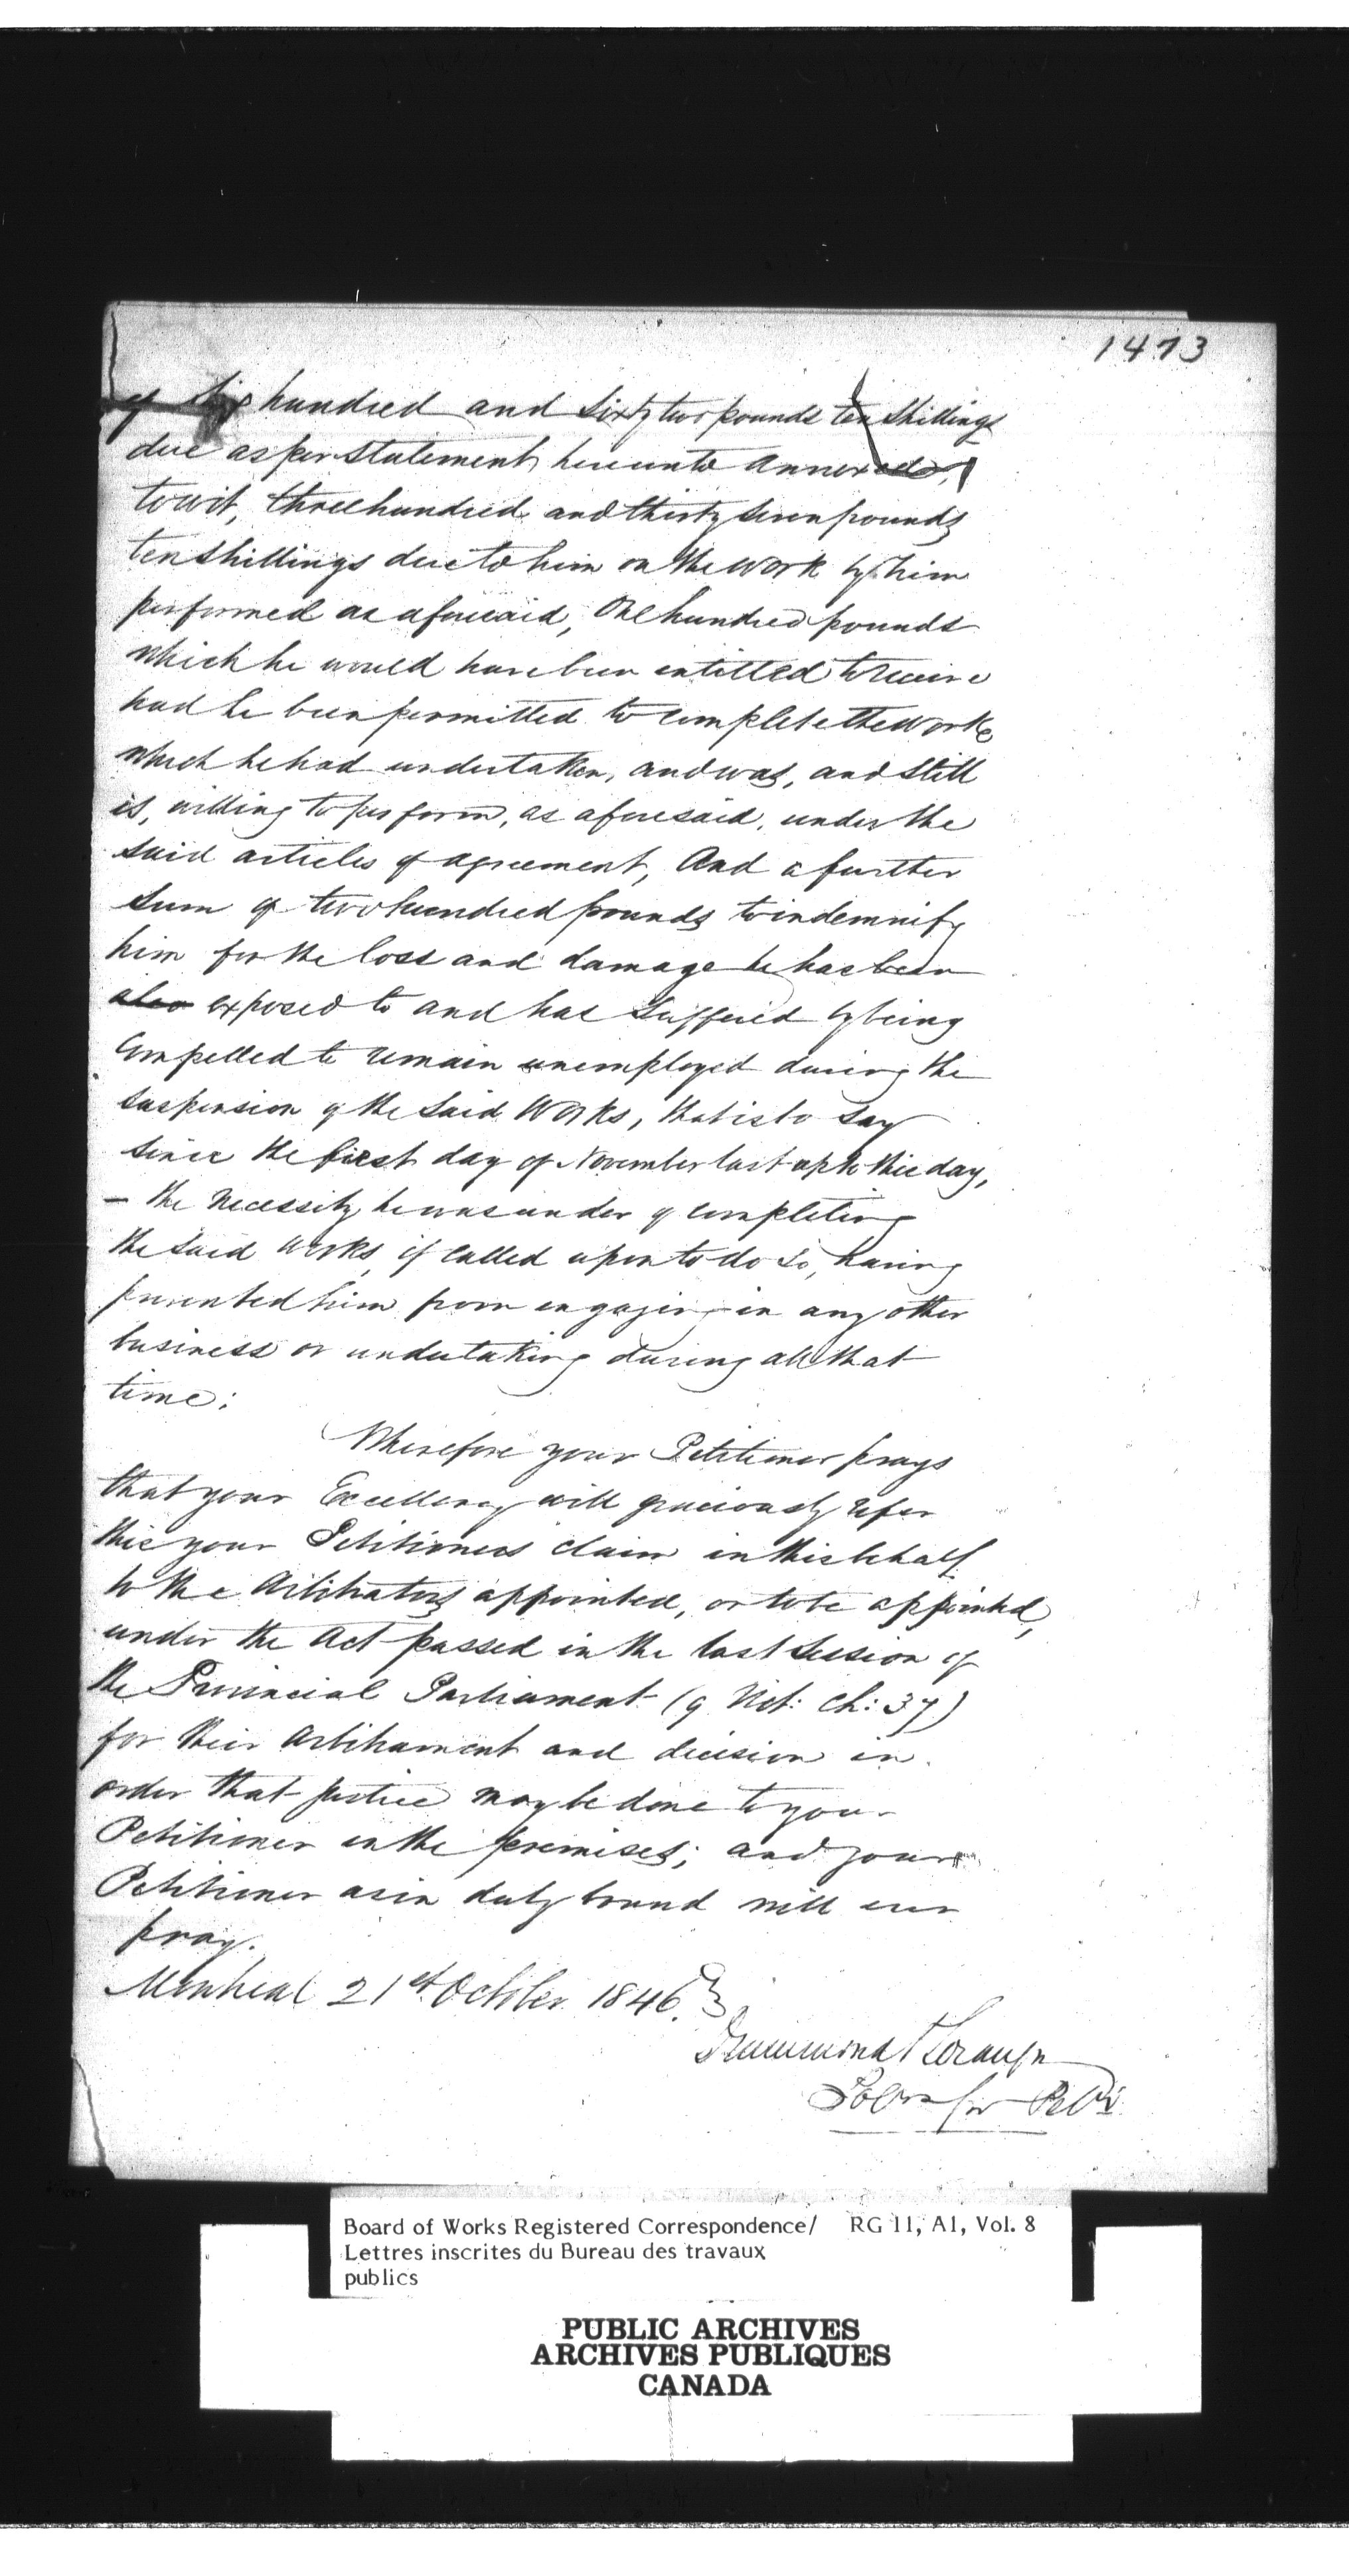 1473
of Six hundred and Sixty two pounds ten Shillings
due as per Statement hereunto annexed,
towit, three hundred and thirty seven pounds
ten Shillings due to him on the work by him
performed as aforesaid, One hundred pounds
which he would have been entitled to receive
had he been permitted to complete the works
which he had undertaken, and was, and still
is, willing to perform, as aforesaid, under the
said articles of agreement, And a further
sum of two hundred pounds to indemnify
him for the loss and damage he has been
also exposed to and has suffered by being
Compelled to remain unemployed during the
suspension of the said Works, that is to say
since the first day of November last up to this day,
– the necessity he was under of completing
the said works, if called upon to do so, having
prevented him from engaging in any other
business or undertaking during all that
time:
Wherefore your Petitioner prays
that your Excellency will graciously refer
this your Petitioners claim in this behalf
to the Arbitrators appointed, or to be appointed,
under the Act passed in the last Session of
the Provincial Parliament (9 Vict: Ch: 37)
for their Arbitrament and decision in
order that justice may be done to your
Petitioner in the premises; and your
Petitioner as in duty bound will ever
pray.
Montreal 21st October 1846.
Drummond & Loranger
Solrs for Petr
Board of Works Registered Correspondence/ RG 11, A1, Vol. 8
Lettres inscrites du Bureau des travaux
publics
PUBLIC ARCHIVES
ARCHIVES PUBLIQUES
CANADA